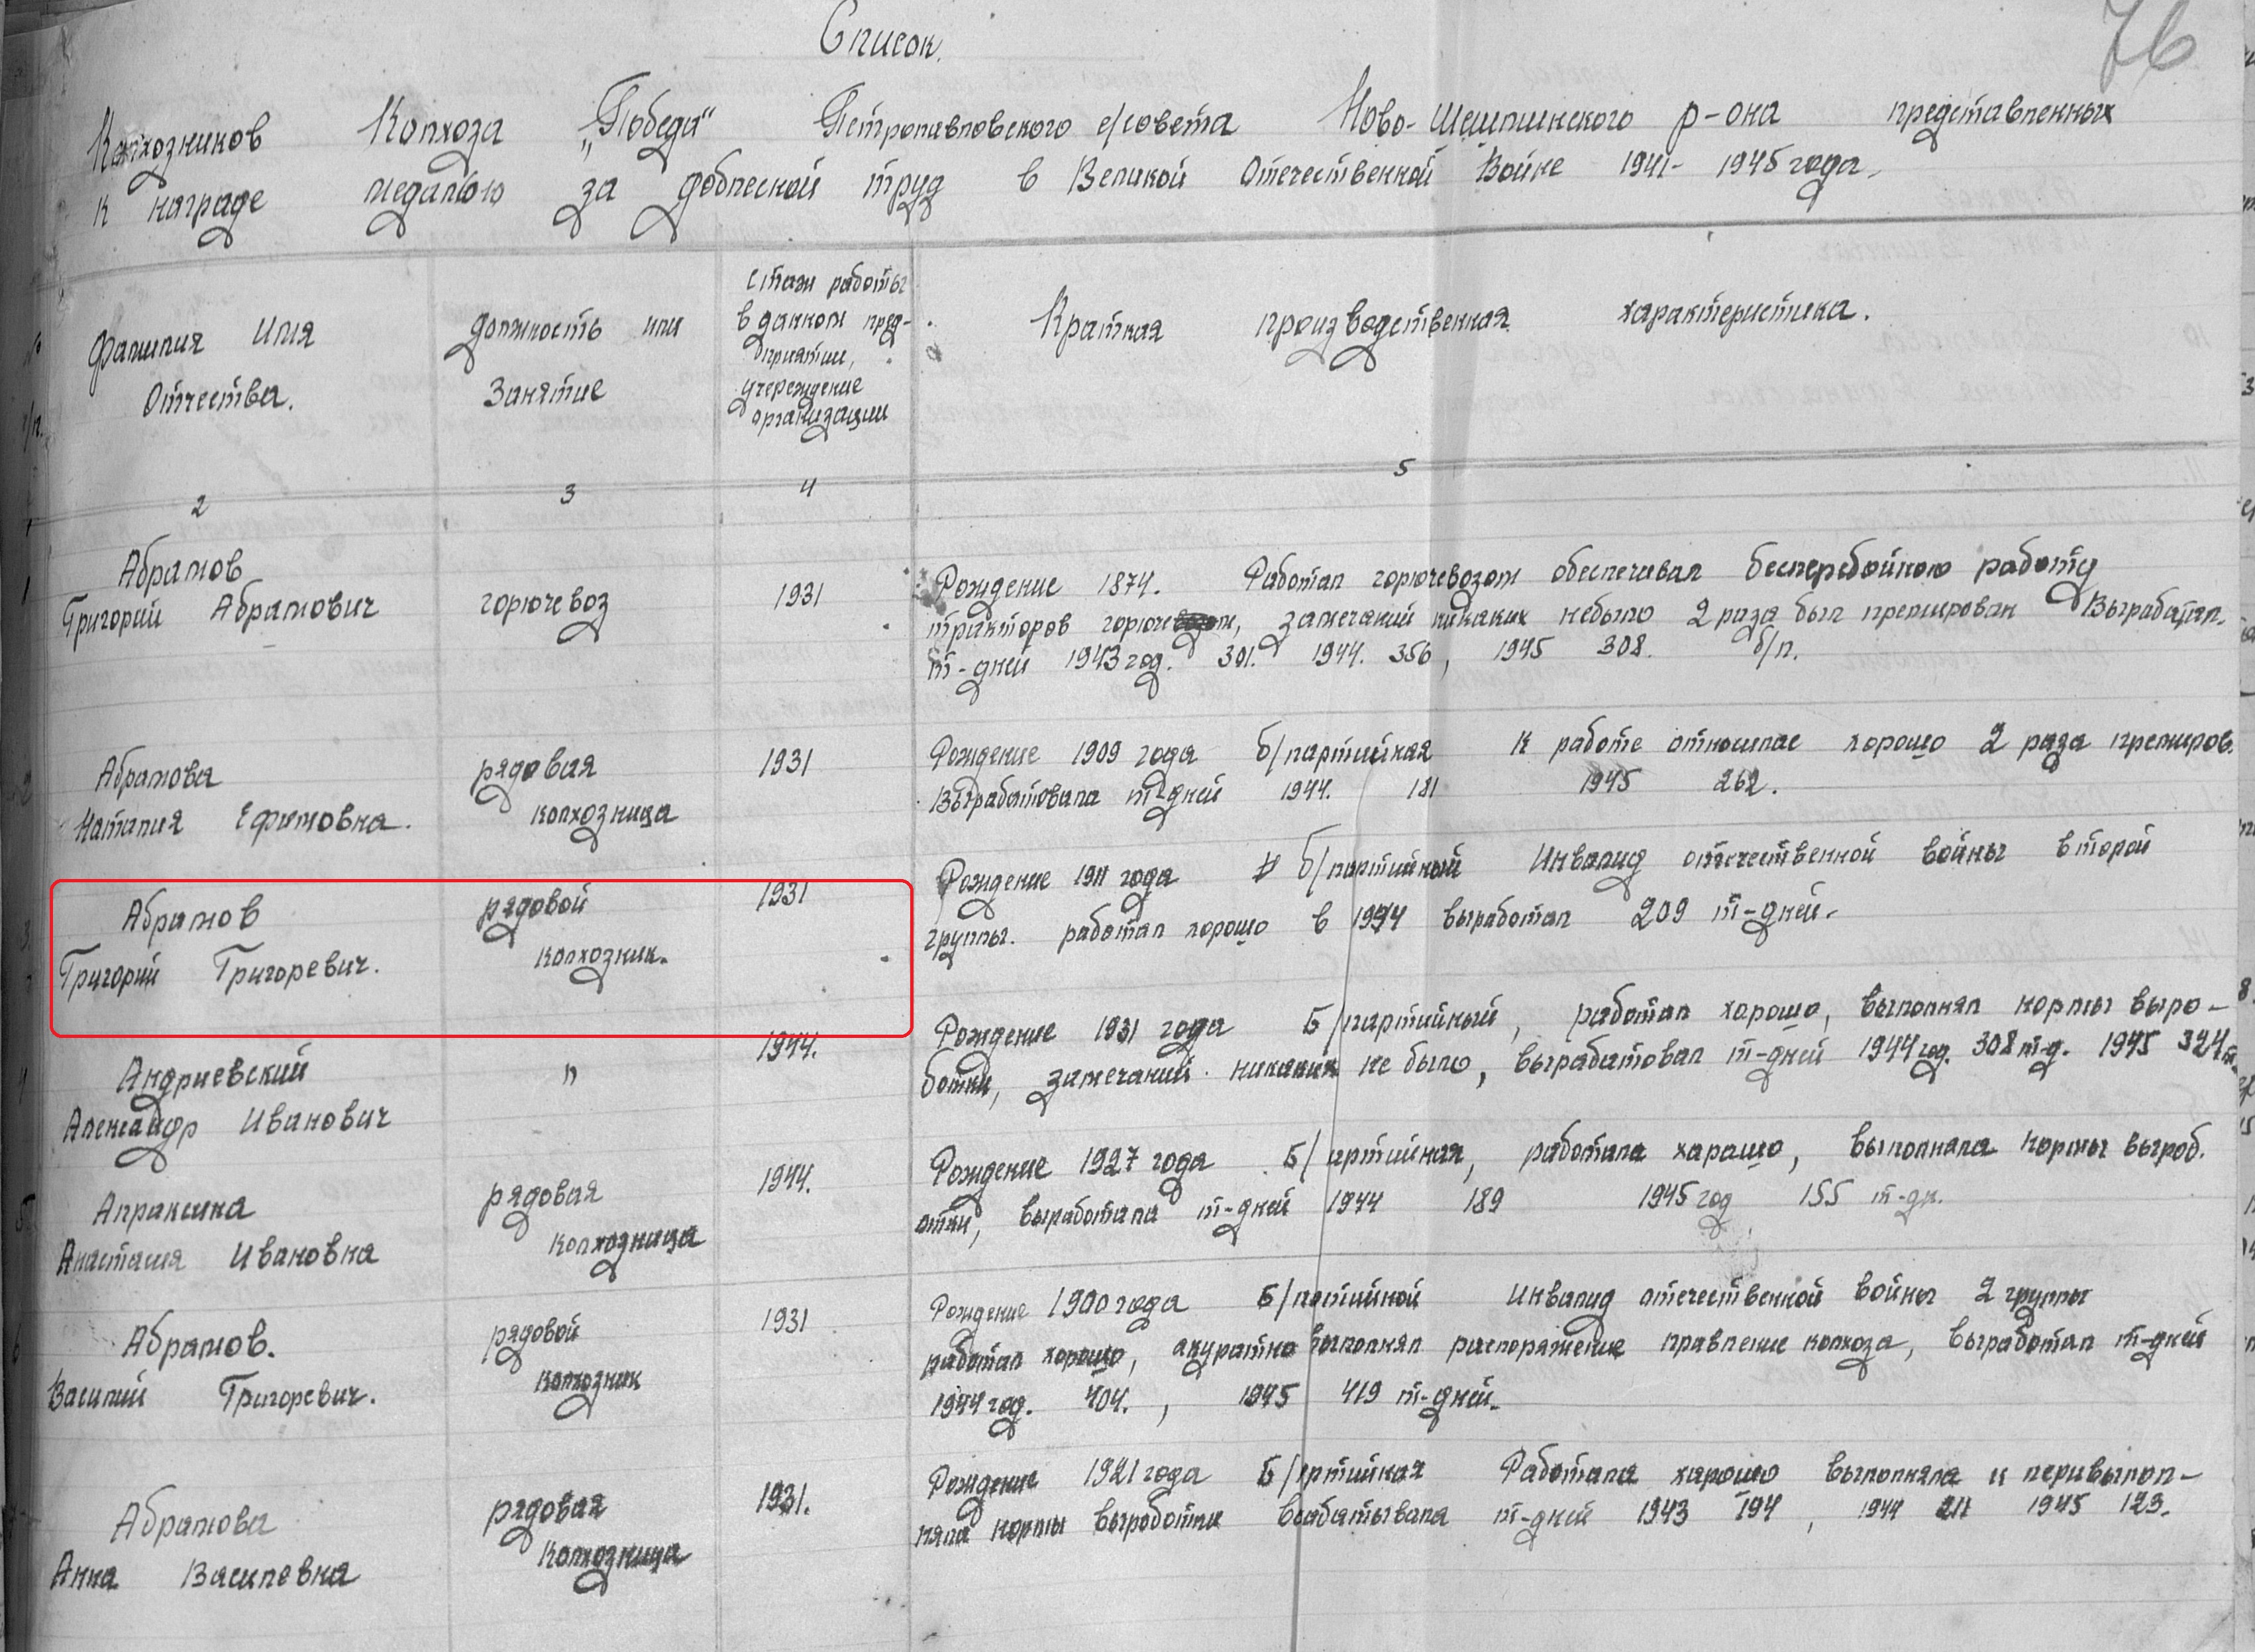 76
Список.
Колхозников Колхоза „Победа" Петропавловского с/совета Ново-Шешминского р-она представленных
к награде медалью за доблеской труд в Великой Отечественной Войне 1941-1945 года.
п/п.
Фамилия Имя
Отчества.
должность или
Занятие
Стаж работы
в данном пред-
приятии,
учереждение
организации
Краткая производственная характеристика.
1 2 3 4 5
1 Абрамов
Григорий Абрамович
горючевоз
1931
Рождение 1874. Работал горючевозом обеспечивал бесперебойною работу
тракторов горючем, замечаний никаких небыло 2 раза был премирован Выработал
т-дней 1943 год. 301. 1944. 356, 1945 308. б/п.
2 Абрамова
Наталия Ефимовна.
рядовая
колхозница
1931
Рождение 1909 года б/партийная К работе отношлас хорошо 2 раза премиров.
Выработовала т-дней 1944. 181 1945 262.
3 Абрамов
Григорий Григоревич.
рядовой
колхозник.
1931
Рождение 1911 года б/партийный Инвалид отечественной войны второй
группы. работал хорошо в 1944 выработал 209 т-дней.
4 Андриевский
Александр Иванович
"
1944.
Рождение 1931 года Б/партийный, работал хорошо, выполнял нормы выро-
ботки, замечаний никаких не было, вырабатовал т-дней 1944 год. 308 т-д. 1945 324 т.
5 Апраксина
Анастасия Ивановна
рядовая
колхозница
1944.
Рождение 1927 года Б/пртийная, работала харашо, выполняла нормы выроб.
отки, выработала т-дней 1944 189 1945 год 155 т-дн.
6 Абрамов.
Василий Григоревич.
рядовой
колхозник
1931
Рождение 1900 года Б/потийной Инвалид отечественной войны 2 группы
работал хорошо, акуратно выполнял распоряжение правление колхоза, выработал т-дней
1944 год. 404., 1945 419 т-дней.
Абрамова
Анна Васильевна
рядовая
колхозница
1931.
Рождение 1921 года Б/ртийная Работала харошо выполняла и перивыпол-
няла нормы выработки т-дней 1943 194, 1944 1945 123.